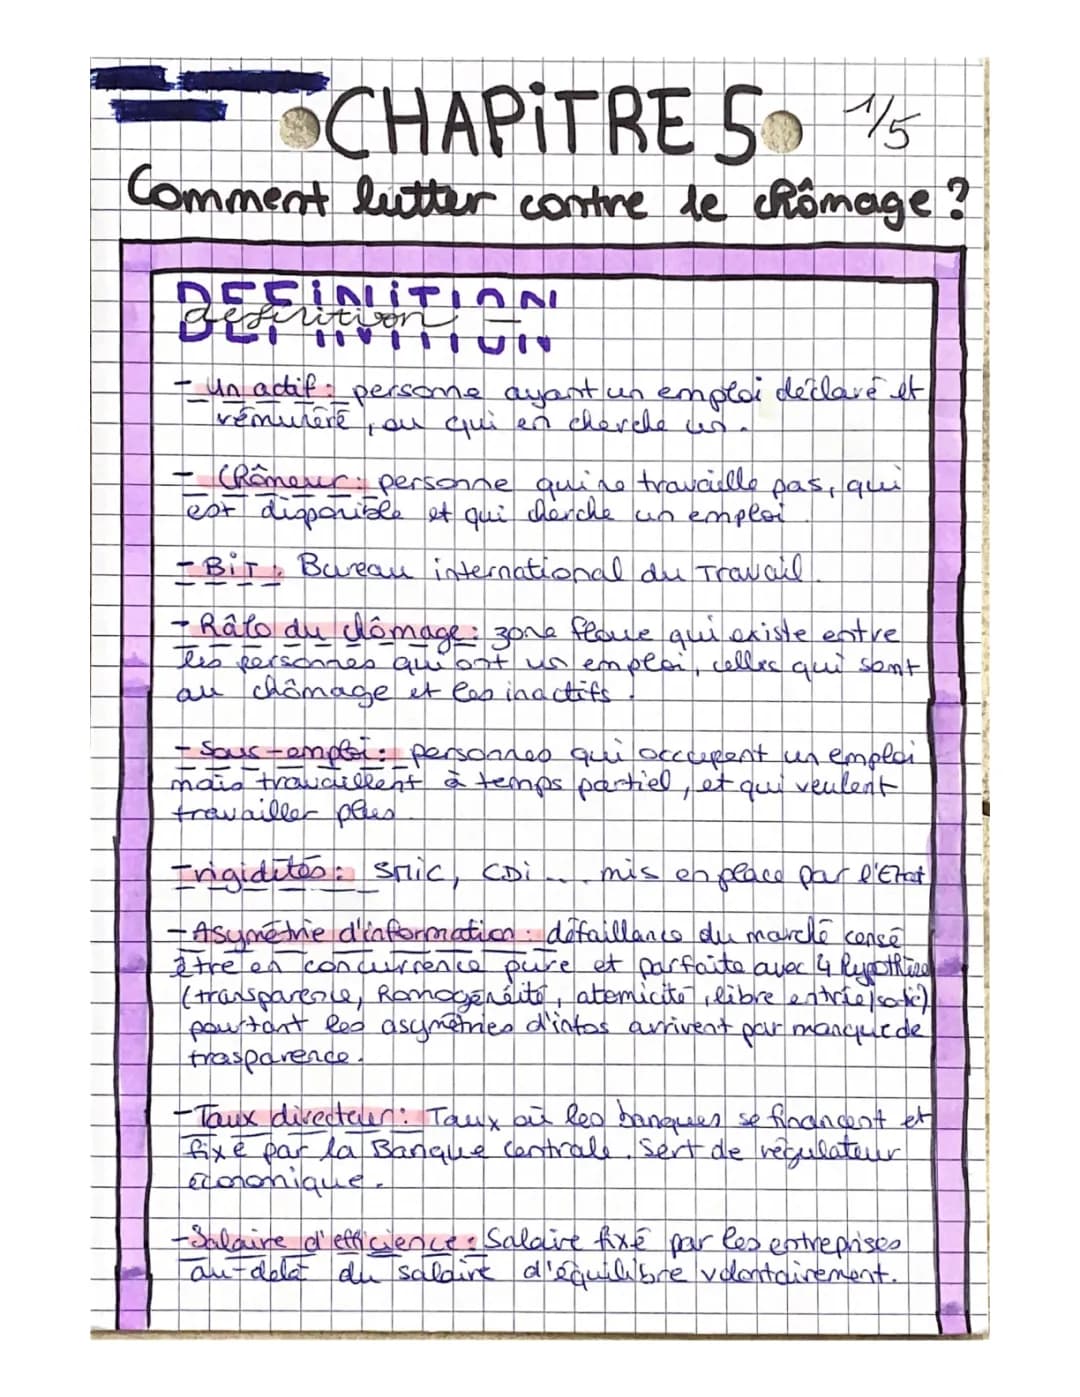 CHAPiTRE 5 1/5
Comment lutter contre le chômage ?
DEFiNiTiON
definition
- Un actif : persome ayant un emploi déclaré et
rémunéré, ou qui en cherche un.
- Chômeur : personne qui ne travaille pas, qui
est disponible et qui cherche un emploi
- BiT : Bureau international du Travail.
- Hâlo du chômage : zone floue qui existe entre
les personnes qui ont un emploi, celles qui sont
au chômage et les inactifs.
- Sous-emploi : personnes qui occupent un emploi
mais travaillent à temps partiel, et qui veulent
travailler plus.
- rigidités : SMiC, CDi... mis en place par l'Etat
- Asymétrie d'information : défaillance du marché censé
être en concurrence pure et parfaite avec 4 hypothèse
(transparence, homogénéité, atomicité, libre entrée/sortie)
pourtant les asymétries d'infos arrivent par manque de
trasparence.
- Taux directeur : Taux où les banques se financent et
fixé par la Banque Centrale. Sert de régulateur
économique.
- Salaire d'efficience : Salaire fixé par les entreprises
au-delà du salaire d'équilibre volontairement.